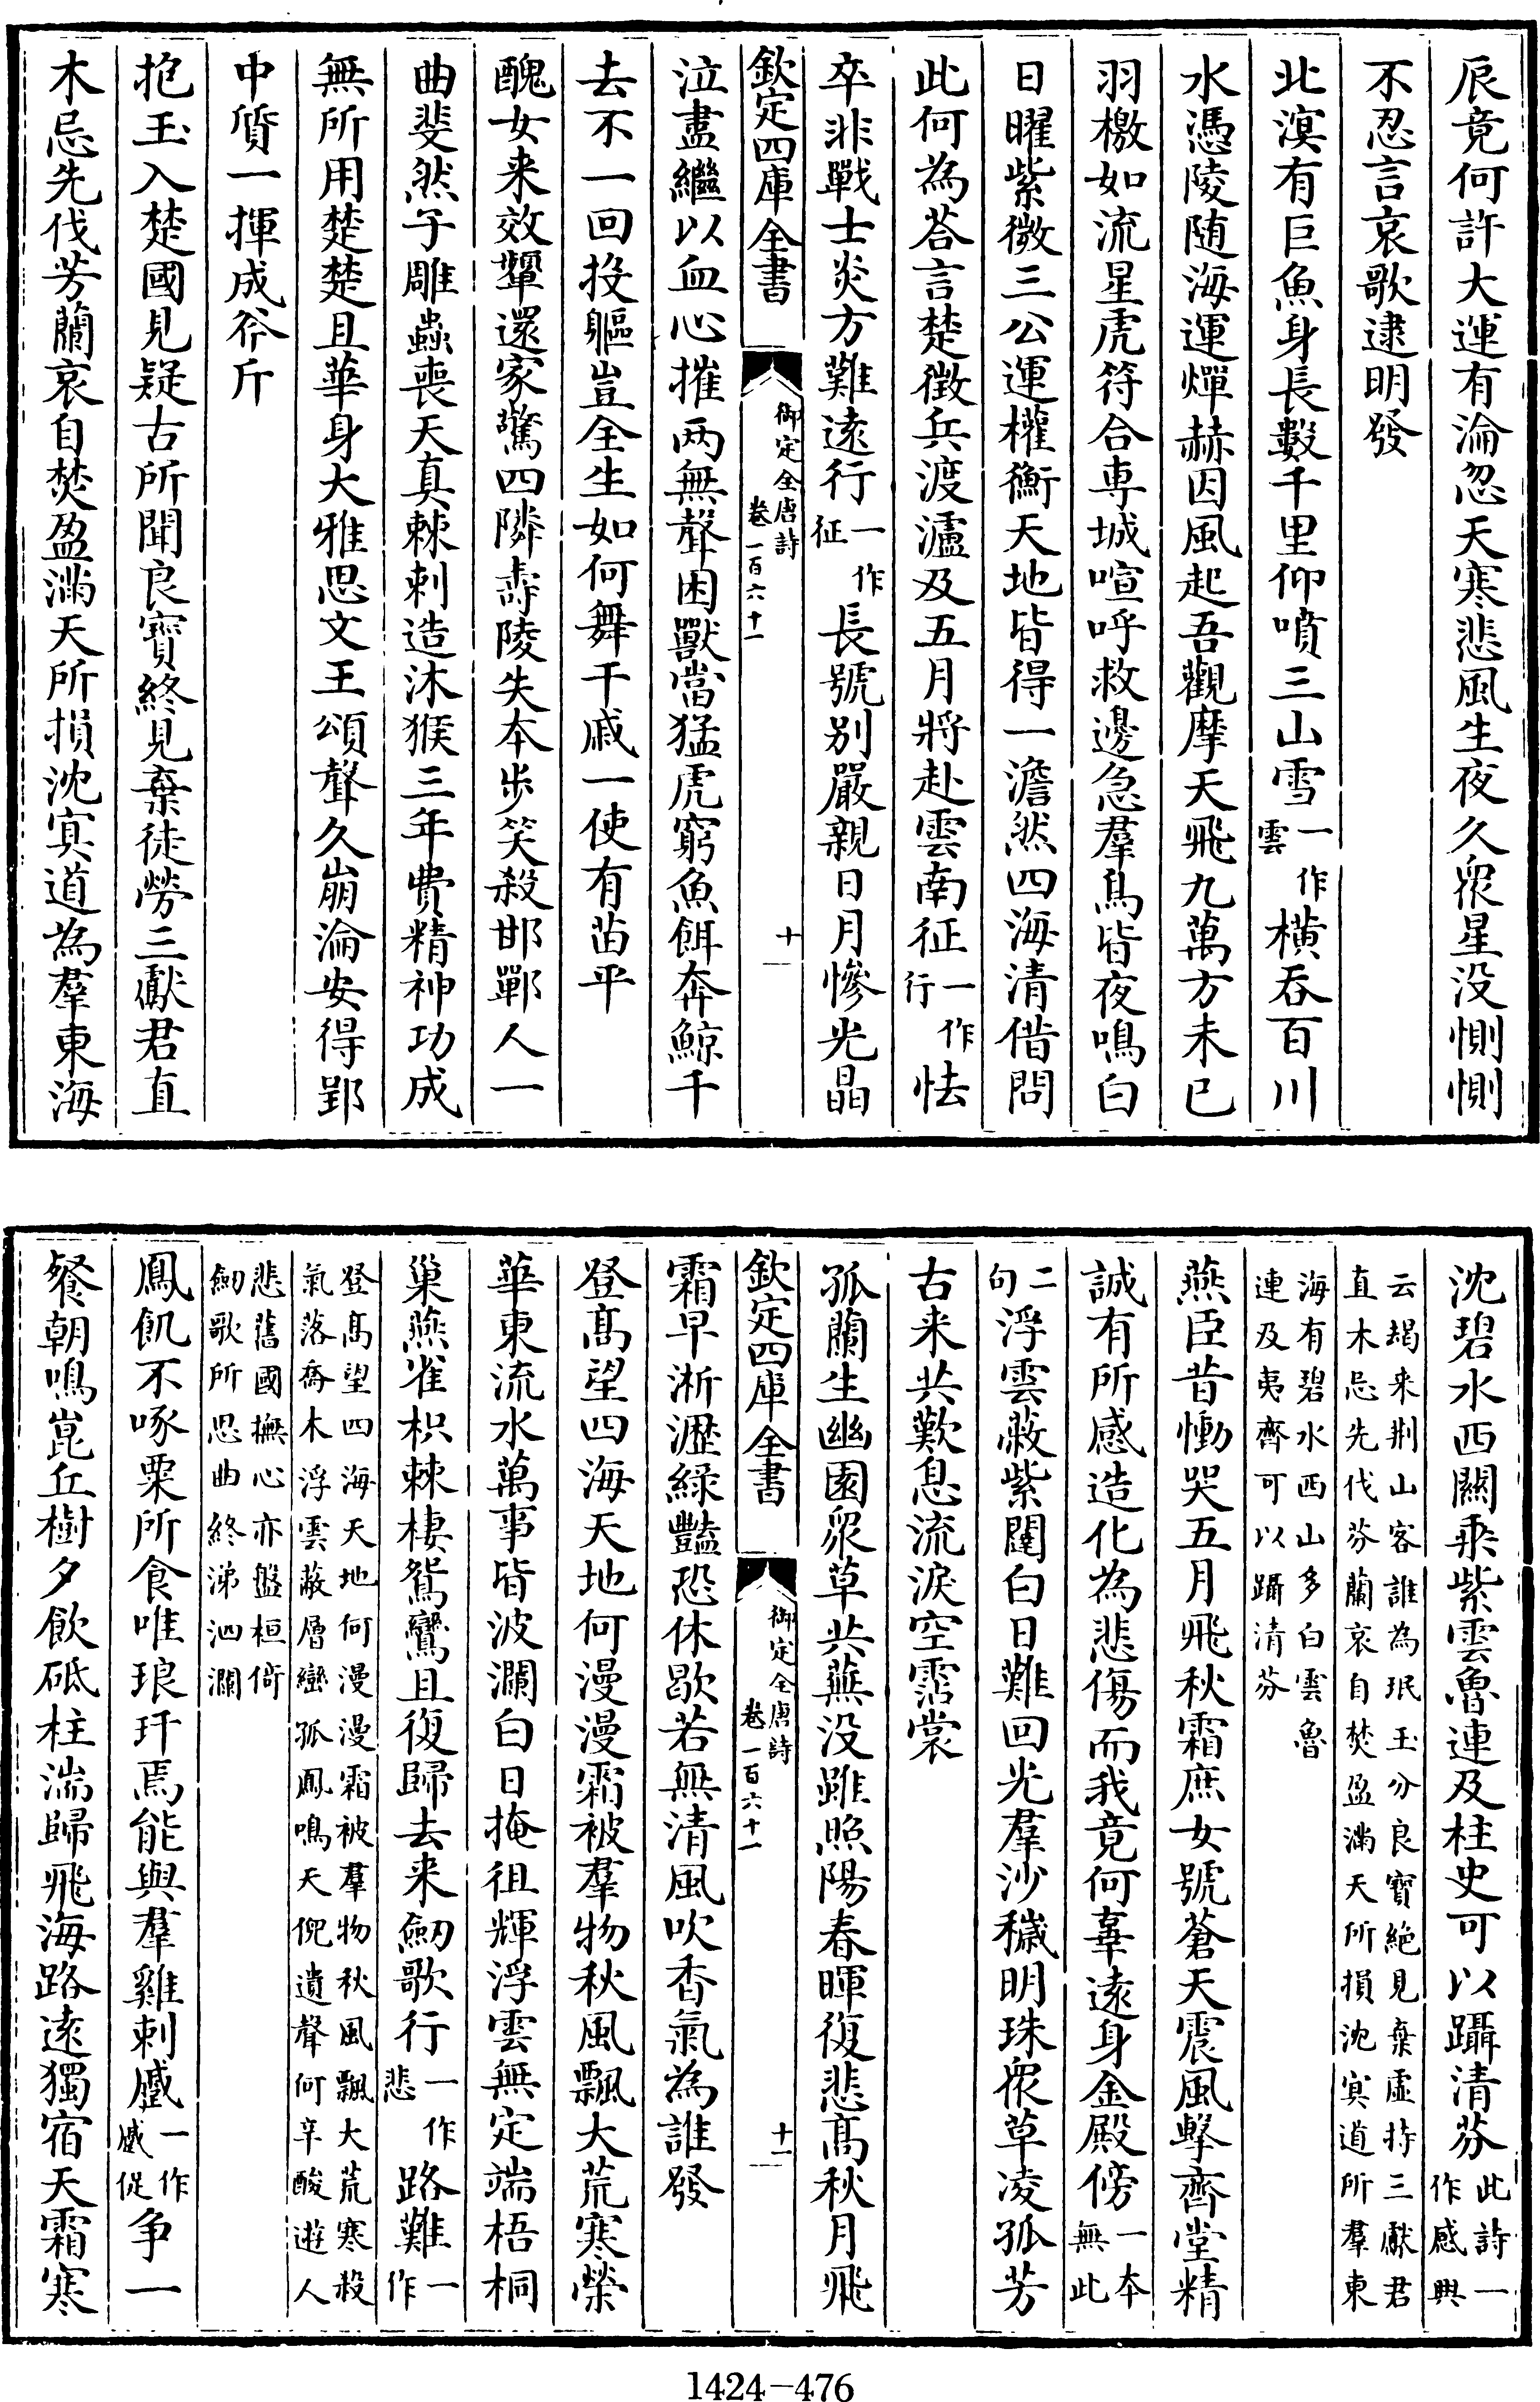 辰竟何許大運有淪忽天寒悲風生夜久衆星没惻惻
不忍言哀歌逮明發
北溟有巨魚身長數千里仰噴三山雪一作雲横吞百川
水憑陵随海運燀赫因風起吾觀摩天飛九萬方未已
羽檄如流星虎符合専城喧呼救邊急羣鳥皆夜鳴白
日曜紫微三公運權衡天地皆得一澹然四海清借問
此何為荅言楚徵兵渡瀘及五月將赴雲南征一作行怯
卒非戰士炎方難遠行一作征長號别嚴親日月慘光晶
欽定四庫全書
御定全唐詩
卷一百六十一
十
泣盡繼以血心摧两無聲困獸當猛虎窮魚餌奔鯨千
去不一回投軀豈全生如何舞干戚一使有苖平
醜女来效顰還家驚四隣壽陵失本歩笑殺邯鄲人一
曲斐然子雕蟲喪天真棘刺造沐猴三年費精神功成
無所用楚楚且華身大雅思文王頌聲久崩淪安得郢
中質一揮成斧斤
抱玉入楚國見疑古所聞良寳終見棄徒勞三獻君直
木忌先伐芳蘭哀自焚盈滿天所損沈㝠道為羣東海
沈碧水西闗乘紫雲魯連及柱史可以躡清芬此詩一作感興
云朅来荆山客誰為珉玉分良寳絶見棄虚持三獻君
直木忌先伐芬蘭哀自焚盈滿天所損沈㝠道所羣東
海有碧水西山多白雲魯
連及夷齊可以躡清芬
燕臣昔慟哭五月飛秋霜庶女號蒼天震風擊齊堂精
誠有所感造化為悲傷而我竟何辜遠身金殿傍一本無此
二句浮雲蔽紫闥白日難回光羣沙穢明珠衆草凌孤芳
古来共歎息流淚空霑裳
孤蘭生幽園衆草共蕪没雖照陽春暉復悲髙秋月飛
欽定四庫全書
御定全唐詩
卷一百六十一
十一
霜早淅瀝緑豔恐休歇若無清風吹香氣為誰發
登髙望四海天地何漫漫霜被羣物秋風飄大荒寒榮
華東流水萬事皆波瀾白日掩徂輝浮雲無定端梧桐
巢燕雀枳棘棲鴛鸞且復歸去来劒歌行一作悲路難一作
登髙望四海天地何漫漫霜被羣物秋風飄大荒寒殺
氣落喬木浮雲蔽層巒孤鳳鳴天倪遺聲何辛酸遊人
悲舊國撫心亦盤桓倚
劒歌所思曲終涕泗瀾
鳳飢不啄粟所食唯琅玕焉能與羣雞刺蹙一作蹙促争一
餐朝鳴崑丘樹夕飲砥柱湍歸飛海路遠獨宿天霜寒
1424-476